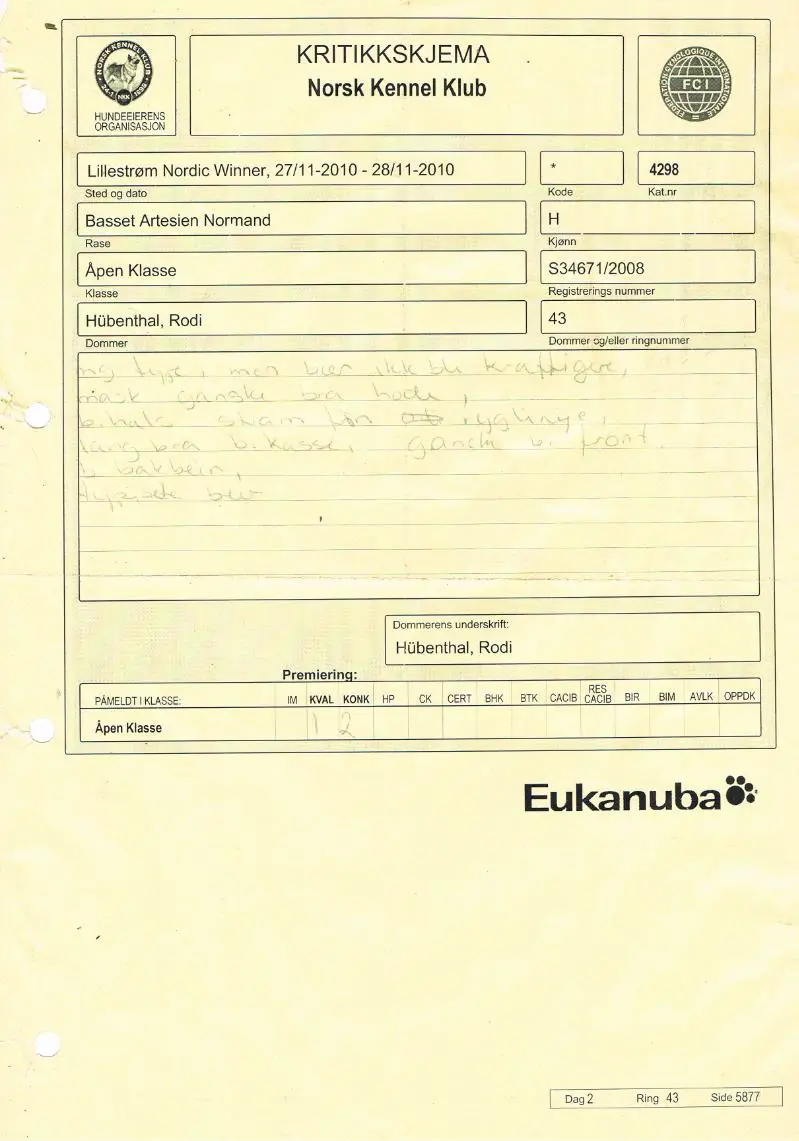 KRITIKKSKJEMA
Norsk Kennel Klub
NORSK KENNEL KLUB
24-1 NKK 1898
HUNDEEIERENS
ORGANISASJON
FEDERATION CYNOLOGIQUE INTERNATIONALE
FCI
Lillestrøm Nordic Winner, 27/11-2010 - 28/11-2010
*
4298
Sted og dato
Kode
Kat.nr
Basset Artesien Normand
H
Rase
Kjønn
Åpen Klasse
S34671/2008
Klasse
Registrerings nummer
Hübenthal, Rodi
43
Dommer
Dommer og/eller ringnummer
type, men bør ikk bli kraftigere,
mask ganske bra hode,
b. hals ryglinye,
lang bra b. kasse, b. front.
b. bakbein,
Dommerens underskrift:
Hübenthal, Rodi
Premiering:
PÅMELDT I KLASSE: IM KVAL KONK HP CK CERT BHK BTK CACIB RES CACIB BIR BIM AVLK OPPDK
Åpen Klasse 1 2
Eukanuba
Dag 2 Ring 43 Side 5877